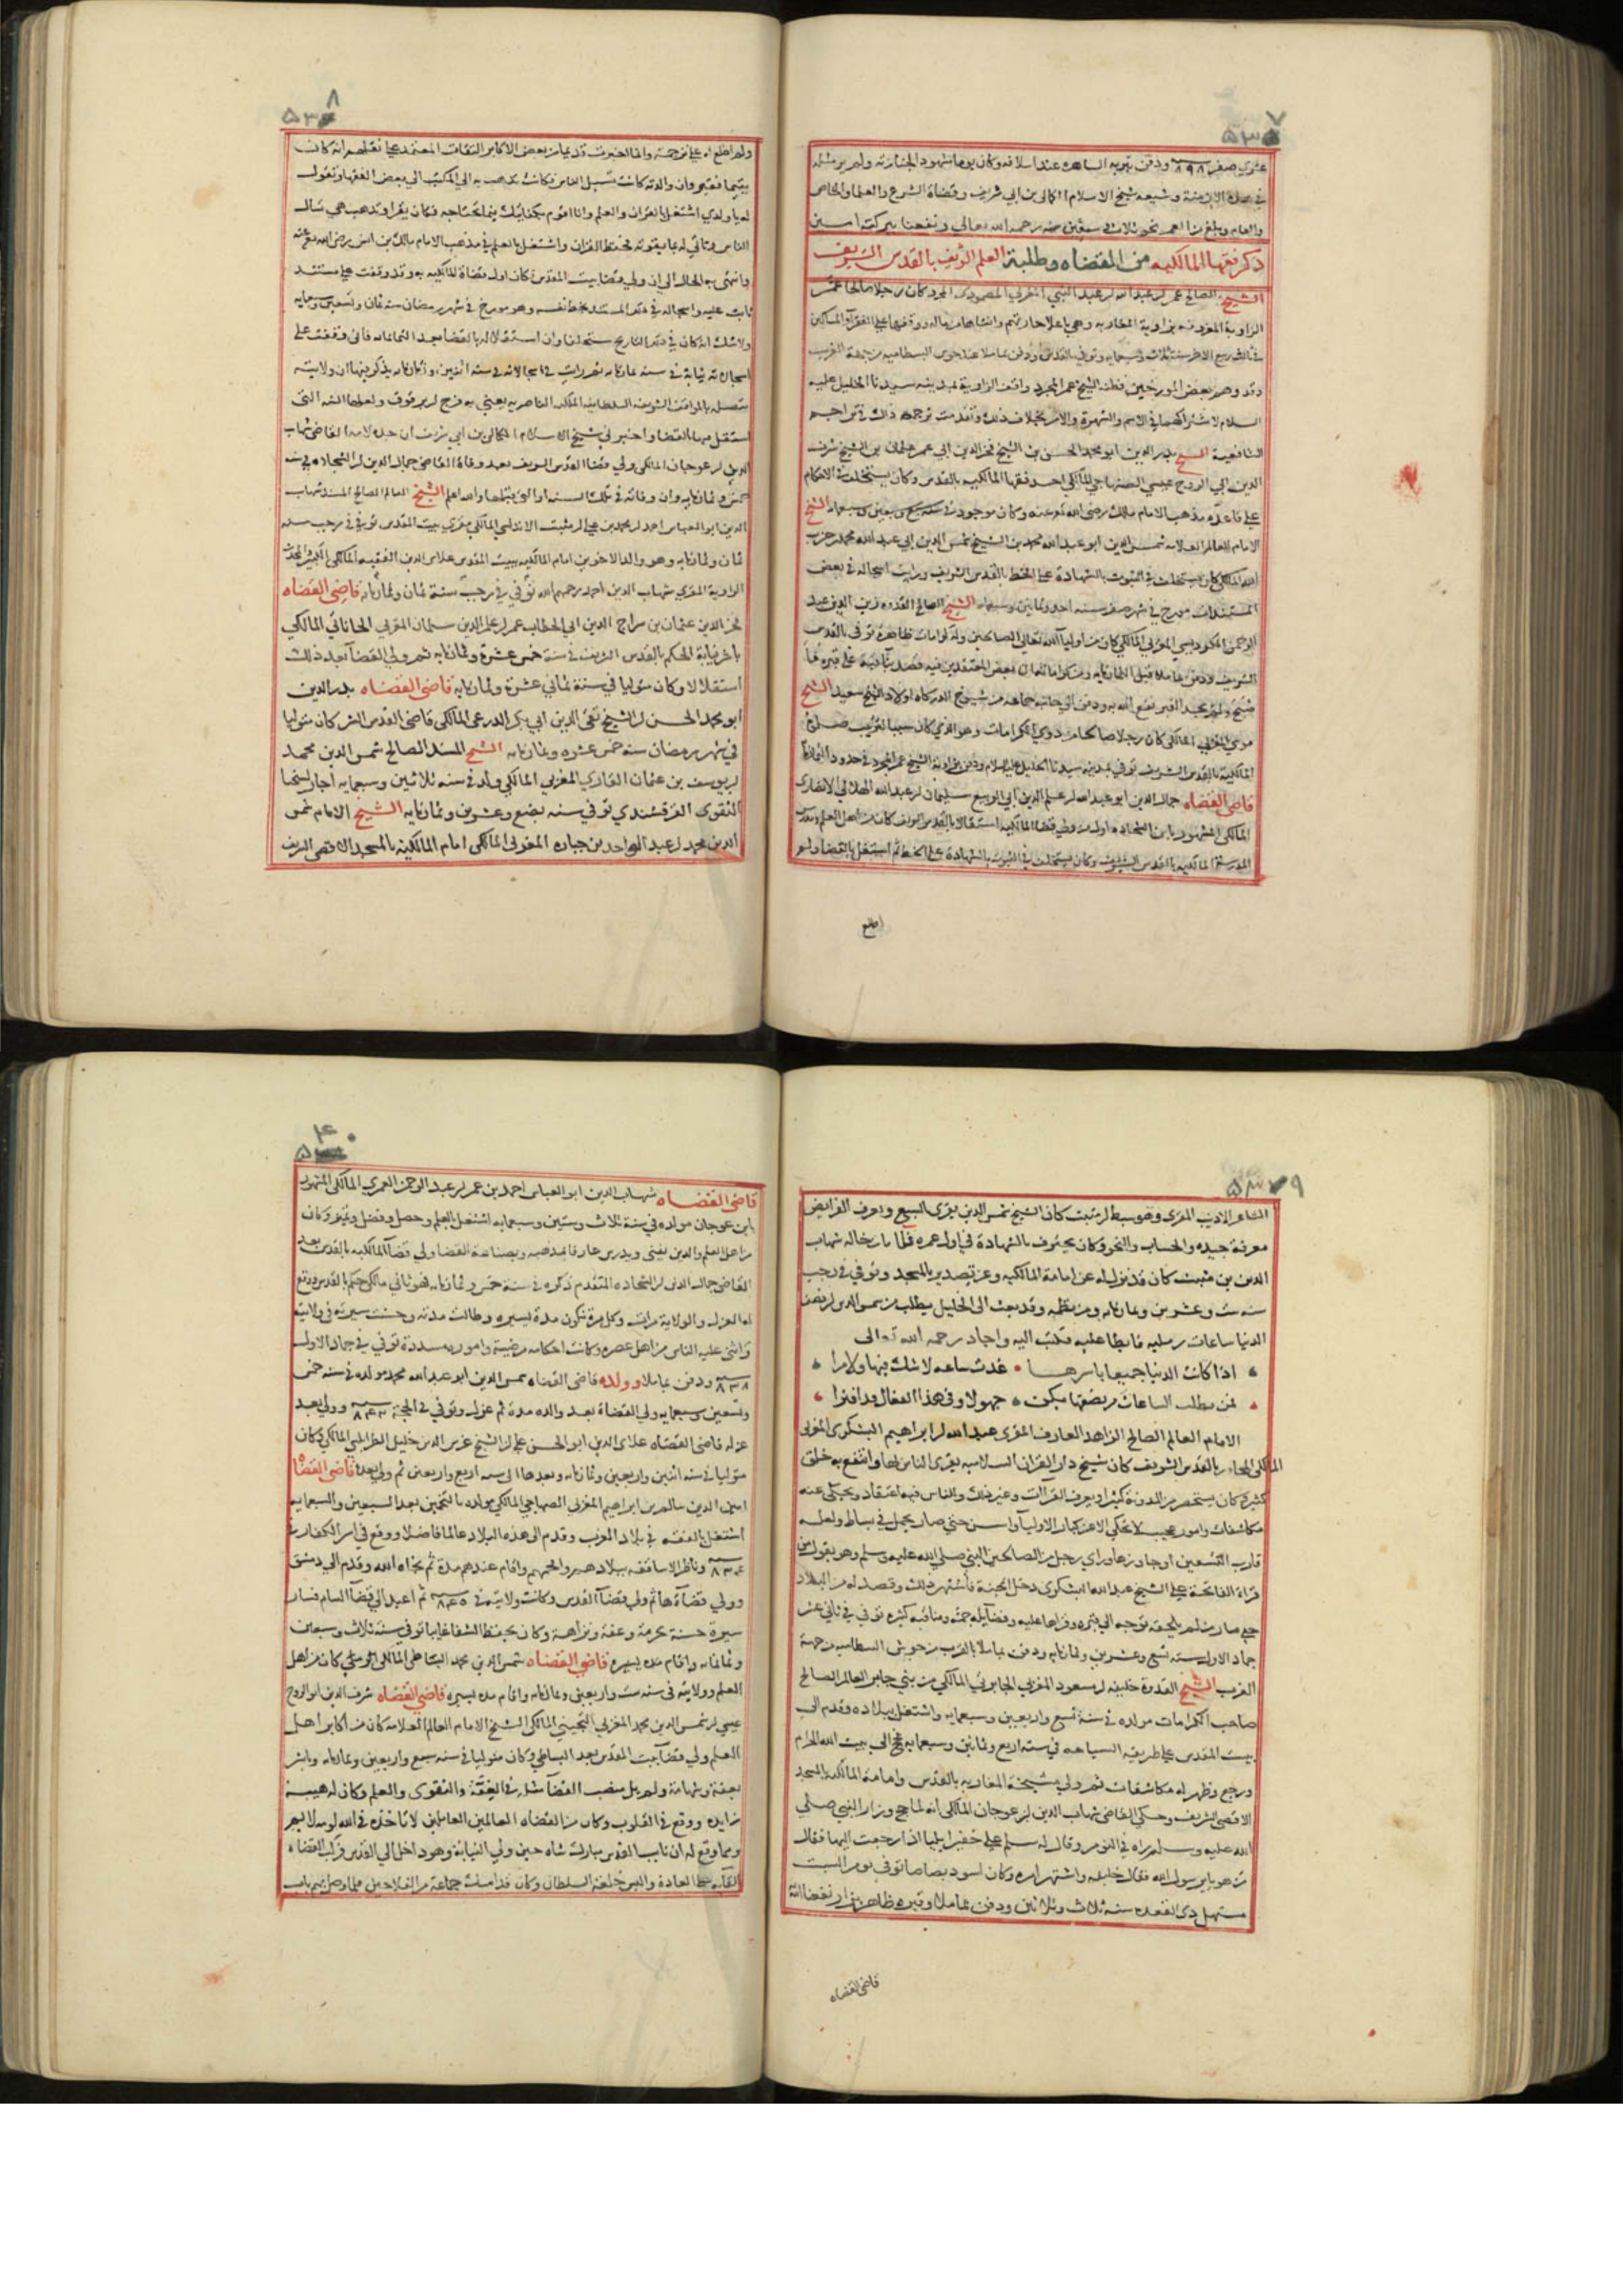 ٥٣٧
عشري صفر ٨٩٨ ودفن بتربه الساهره عند اسلافه وكان يوما مشهود الجنازته ولم ير مثله
في هذه الازمنة وشيعه شيخ الاسلام الكمالى بن ابي شريف وقضاة الشرع والعلما والخاص
والعام وبلغ من العمر نحو ثلاث وسبعين سنه رحمه الله تعالي ونفعنا ببركته امين
ذكر فقها المالكيه من القضاه وطلبة العلم الشريف بالقدس الشريف
الشيخ الصالح عمر بن عبد الله بن عبد النبي المغربي المصمودي المجرد كان رجلا صالحا عمر
الزاوية المعروفه بزاوية المغاربه وهي باعلا حارتهم وانشاها من ماله ووقفها علي الفقرآ والمساكين
في ربيع الاخر سنة ثلاث وسبعمايه وتوفي بالقدس ودفن بماملا عند حوش البسطاميه من جهة الغرب
وقد وهم بعض المورخين فظنه الشيخ عمر المجرد واقف الزاوية بمدينه سيدنا الخليل عليه
السلام لاشتراكهما في الاسم والشهرة والامر بخلاف ذلك وتقدمت ترجمة ذاك في تراجم
الشافعية الشيخ بدر الدين ابو محمد الحسن بن الشيخ فخر الدين ابي عمر عثمان بن الشيخ شرف
الدين ابي الروح عيسي الصنهاجي المالكي احد فقها المالكيه بالقدس وكان يستخلف في الاحكام
علي قاعدة مذهب الامام مالك رضي الله عنه وكان موجودا في سنه سبع وسبعين وسبعمايه الشيخ
الامام العالم العلامه شمس الدين ابو عبد الله محمد بن الشيخ شمس الدين ابي عبد الله محمد بن حرب
الله المالكي كان يستخلف في الثبوت بالشهادة علي الخط بالقدس الشريف ورايت اسجاله في بعض
المستندات مورخ في شهر صفر سنه احد وثمانين وسبعمايه الشيخ الصالح القدوه زين الدين عبد
الرحمن المكوديسي المغربي المالكي كان من اوليآ الله تعالي الصالحين وله كرامات ظاهرة توفي بالقدس
الشريف ودفن بماملا قبل الثمانمايه
موسي المغربي المالكي كان رجلا صالحا من ذوي الكرامات وهو الذي كان سببا لترتيب صلاة
المالكية بالقدس الشريف توفي بمدينه سيدنا الخليل عليه السلام ودفن بزاوية الشيخ عمر المجرد في حدود الثمانمايه
قاضي القضاه جمال الدين ابو عبد الله بن علم الدين ابي الربيع سليمان بن عبد الله الهلالي الانصاري
المالكي المشهور بابن الشحاده اول من ولي قضا المالكيه استقلالا بالقدس الشريف كان من اهل العلم ومدرس
المدرسة المالكيه بالقدس الشريف وكان يستخلف في الثبوت بالشهادة علي الخط ثم استقل بالقضا ولم
اطلع
٥٣٨
ولم اطلع له علي ترجمة وانما اخبرت قديما من بعض الاكابر الثقات المعتمد علي نقلهم انه كان
يتيما فقيرا وان والدته كانت تسبل الناس فكانت تذهب به الي المكتب الي بعض الفقها وتقول
له يا ولدي اشتغل بالقران والعلم وانا اقوم بكفايتك بما تحتاجه فكان يقرا وتذهب هي تسال
الناس وتاتي له بما يقوته فحفظ القران واشتغل بالعلم في مذهب الامام مالك بن انس رضي الله عنه
وانتهي به الحال الي ان ولي قضا بيت المقدس فكان اول قضاة المالكيه به وقد وقفت علي مستند
ثابت عليه واسجاله في ذلك المستند بخط نفسه وهو مورخ في شهر رمضان سنه ثمان وتسعين وسبعمايه
ولا شك انه كان في ذلك التاريخ مستخلفا وان استقلاله بالقضا بعد الثمانمايه فاني وقفت علي
اسجالاته نيابة في سنه ثمانمايه ثم رايت في اسجالاته في سنه اثنين وثمانمايه يذكر فيها ان ولايته
متصله بالمواقف الشريفه السلطانيه الملكيه الناصريه يعني به فرج بن برقوق ولعلها السنه التي
استقل فيها بالقضا واخبرني شيخ الاسلام الكمالى بن ابي شريف ان جده لامه القاضي شهاب
الدين بن عوجان المالكي ولي قضا القدس الشريف بعد وفاة القاضي جمال الدين بن الشحاده في سنه
خمس وثمانمايه وان وفاته في تلك السنه او التي قبلها والله اعلم الشيخ العالم الصالح المسند شهاب
الدين ابو العباس احمد بن محمد بن علي بن مثبت الاندلسي المالكي مقري بيت المقدس توفي في رجب سنه
ثمان وثمانمايه وهو والد الاخوين امام المالكيه ببيت المقدس علاء الدين الفقيه المالكي الخير المحدث
الراوية المقري شهاب الدين احمد رحمهم الله توفي في رجب سنة ثمان وثمانمايه قاضي القضاه
فخر الدين عثمان بن سراج الدين ابي الخطاب عمر بن علم الدين سلمان المغربي الحاناتي المالكي
باشر نيابة الحكم بالقدس الشريف في سنة خمس عشرة وثمانمايه ثم ولي القضآ بعد ذلك
استقلالا وكان متوليا في سنة ثماني عشرة وثمانمايه قاضي القضاه بدر الدين
ابو محمد الحسن بن الشيخ تقي الدين ابي بكر الدرعي المالكي قاضي القدس الشريف كان متوليا
في شهر رمضان سنه خمس عشره وثمانمايه الشيخ المسند الصالح شمس الدين محمد
بن يوسف بن عثمان القاري المغربي المالكي ولد في سنه ثلاثين وسبعمايه اجاز لشيخنا
التقوي القرقشندي توفي سنه بضع وعشرين وثمانمايه الشيخ الامام شمس
الدين محمد بن عبد الواحد بن جباره المغربي المالكي امام المالكيه بالمسجد الاقصي الشريف
٥٣٩
الشاعر الاديب المقري وهو سبط بن مثبت كان الشيخ شمس الدين يقري السبع ويعرف الفرايض
معرفة جيده والحساب والنحو وكان يحترف بالشهادة في اول عمره فلما مات خاله شهاب
الدين بن مثبت كان قد نزل له عن امامة المالكيه وعن تصدير بالمسجد وتوفي في رجب
سنه ست وعشرين وثمانمايه ومن نظمه وقد بعث الى الخليل يطلب من شمس الدين بن نصف
الدنيا ساعات رمليه فابطا عليه فكتب اليه واجاد رحمه الله تعالى
اذا كانت الدنيا جميعا باسرها • غدت ساعه لا شك فيها ولا مرا
فمن يطلب الساعات من نصفها يكن • جهولا وفي هذا المقال قد افترا
الامام العالم الصالح الزاهد العارف المقري عبد الله بن ابراهيم البشكري المغربي
المالكي المجاور بالقدس الشريف كان شيخ دار القران السلاميه يقري الناس بها وانتفع به خلق
كثير وكان يستحضر من المدونة كثيرا ويعرف القراآت وغير ذلك وللناس فيه اعتقاد ويحكي عنه
مكاشفات وامور عجيبه لا تحكي الا عن كبار الاوليآ واسن حتي صار يحمل في بساط ولعله
قارب التسعين او جاوزها وراي رجل من الصالحين النبي صلي الله عليه وسلم وهو يقول من
قراء الفاتحة علي الشيخ عبد الله البشكري دخل الجنة فاشتهر ذلك وقصد له من البلاد
حتي صار من لم يلحقه توجه الي قبره وقراها عليه وفضايله جمة ومناقبه كثيره توفي في ثاني عشر
جماد الاول سنه تسع وعشرين وثمانمايه ودفن بماملا بالقرب من حوش البسطاميه من جهة
الغرب الشيخ القدوة خليفه بن مسعود المغربي الجابري المالكي من بني جابر العالم الصالح
صاحب الكرامات مولده في سنة تسع واربعين وسبعمايه واشتغل ببلاده وقدم الي
بيت المقدس علي طريقه السياحه في سنه اربع وثمانين وسبعمايه فحج الي بيت الله الحرام
ورجع وظهر له مكاشفات ثم ولي مشيخة المغاربه بالقدس وامامة المالكيه بالمسجد
الاقصي الشريف وحكي القاضي شهاب الدين بن عوجان المالكي انه لما حج وزار النبي صلي
الله عليه وسلم راه في النوم وقال له سلم علي خفير ايليا اذا رجعت اليها فقال
من هو يا رسول الله فقال خليفه واشتهر امره وكان اسود بصاصا توفي يوم السبت
مستهل ذي القعده سنه ثلاث وثلاثين ودفن بماملا وقبره ظاهر يزار نفعنا الله
قاضي القضاه
٥٤٠
قاضي القضاه شهاب الدين ابو العباس احمد بن عمر بن عبد الرحمن العمري المالكي المشهور
بابن عوجان مولده في سنة ثلاث وستين وسبعمايه اشتغل بالعلم وحصل وفضل وتميز وكان
من اهل العلم والدين يفتي ويدرس عارفا بمذهبه وبصناعة القضا ولي قضآ المالكيه بالقدس بعد
القاضي جمال الدين بن الشحاده المتقدم ذكره في سنة خمس وثمانمايه فهو ثاني مالكي حكم بالقدس ووقع
له العزل والولاية مرات وكل مرة تكون مدة يسيره وطالت مدته وحسنت سيرته في ولايته
واثني عليه الناس من اهل عصره وكانت احكامه مرضية واموره مسددة توفي في جماد الاول
٨٣٨ ودفن بماملا وولده قاضي القضاه شمس الدين ابو عبد الله محمد مولده في سنه خمس
وتسعين وسبعمايه ولي القضاة بعد والده مدة ثم عزل وتوفي في الحجة وولي بعد
عزله قاضي القضاه علاى الدين ابو الحسن علي بن الشيخ غرس الدين خليل الطرابلسي المالكي وكان
متوليا في سنه اثنين واربعين وثمانمايه وبعدها الي سنه اربع واربعين ثم ولي بعده قاضي القضاه
امين الدين سالم بن ابراهيم المغربي الصنهاجي المالكي مولده بالتخمين بعد السبعين والسبعمايه
اشتغل بالفقه في بلاد المغرب وقدم الي هذه البلاد عالما فاضلا ووقع في اسر الكفار
وناظر الاساقفه ببلادهم والحمهم واقام عندهم مدة ثم نجاه الله وقدم الي دمشق
وولي قضاءها ثم ولي قضآ القدس وكانت ولايته في ٨٤٥ ثم اعيد الي قضآ الشام فسار
سيرة حسنة بحرمة وعفة ونزاهة وكان يحفظ الشفا غايبا توفي سنة ثلاث وسبعين
وثمانمايه واقام مده يسيره قاضي القضاه شمس الدين محمد البساطي المالكي كان من اهل
العلم وولايته في سنه ست واربعين وثمانمايه واقام مده يسيره قاضي القضاه شرف الدين ابو الروح
عيسي بن شمس الدين محمد المغربي التجيبي المالكي الشيخ الامام العالم العلامه كان من اكابر اهل
العلم ولي قضآ بيت المقدس بعد البساطي وكان متوليا في سنه سبع واربعين وثمانمايه وباشر
بعفة وشهامة ولم يل منصب القضآ مثله في العفة والتقوي والعلم وكان له هيبة
زايده ووقع في القلوب وكان من القضاه العالمين العاملين لا تاخذه في الله لومه لايم
ومما وقع له ان نايب القدس مبارك شاه حين ولي النيابة وهو داخل الي القدس فركب القضاه
للقايه علي العادة والبس خلعة السلطان وكان قد امسك جماعة من الفلاحين فلما وصل بهم باب